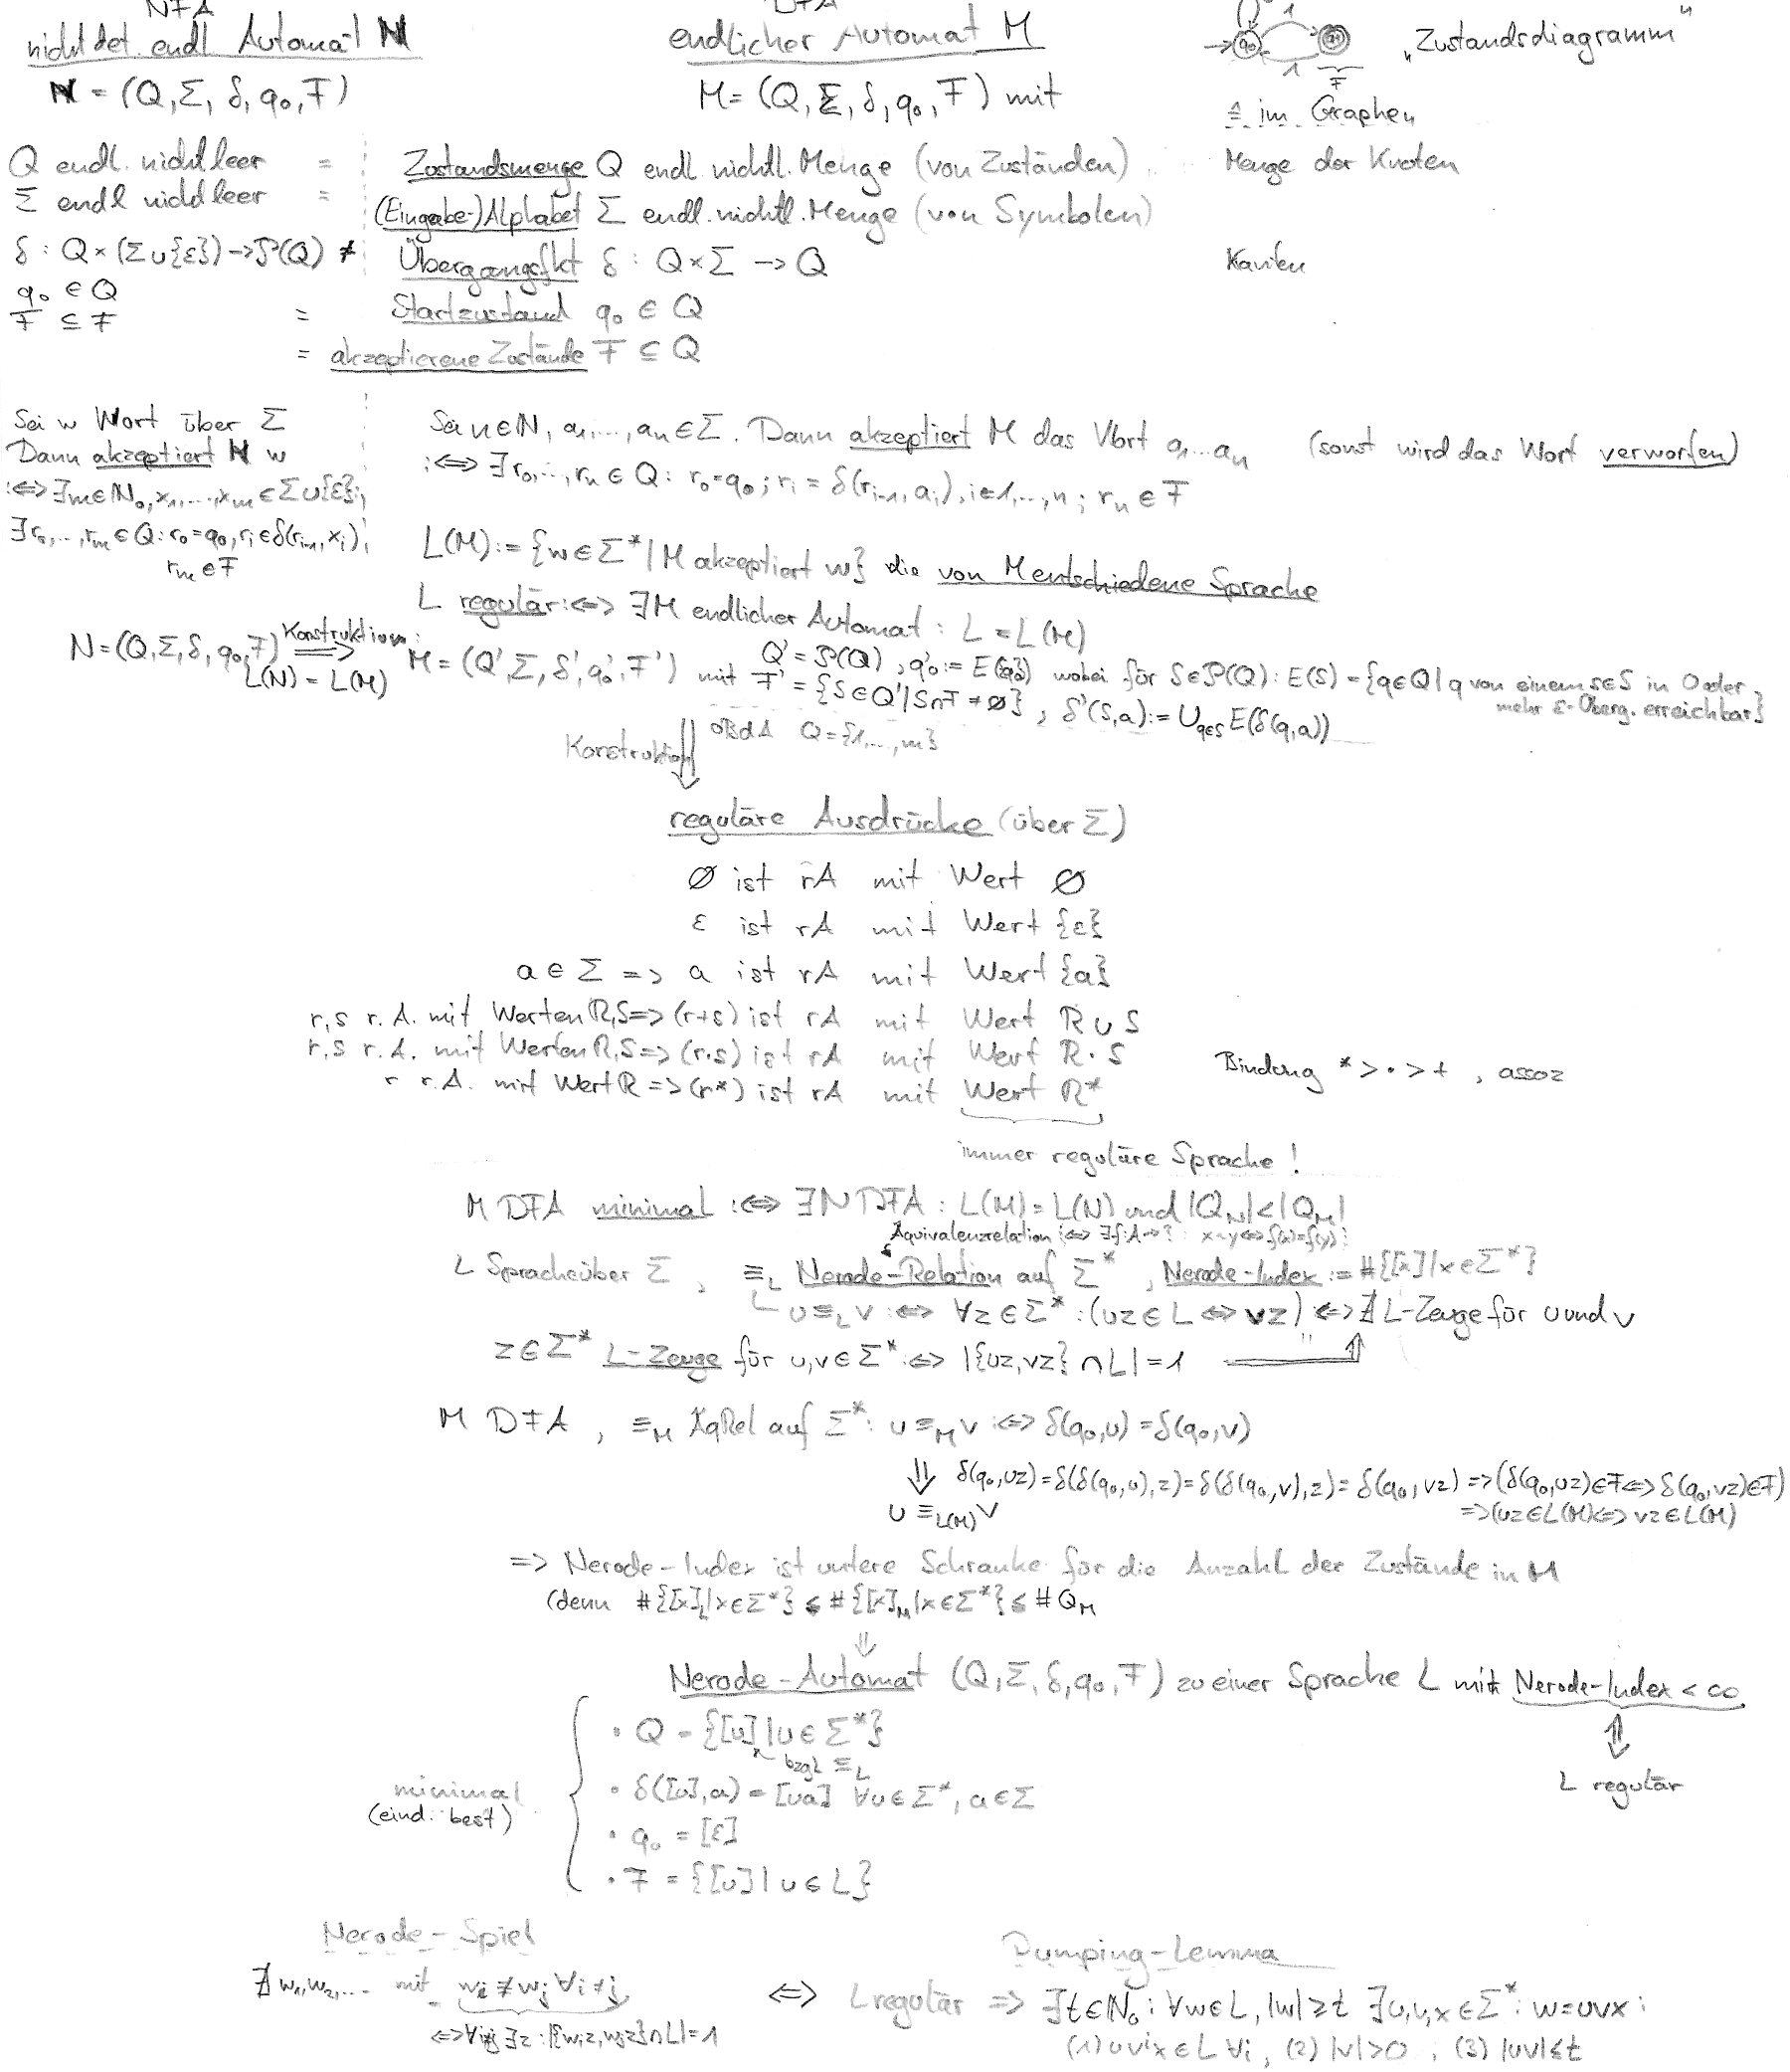 NFA
DFA
nicht det. endl Automat N
endlicher Automat M
q₀ 1 q₁ 1 F
„Zustandsdiagramm"
N = (Q, Σ, δ, q₀, F)
M = (Q, Σ, δ, q₀, F) mit
≙ im Graphen
Q endl. nichtleer = Zustandsmenge Q endl. nichtl. Menge (von Zuständen) Menge der Knoten
Σ endl nichtleer = (Eingabe-)Alphabet Σ endl. nichtl. Menge (von Symbolen)
δ : Q × (Σ ∪ {ε}) → P(Q) ≠ Übergangsfkt δ : Q × Σ → Q Kanten
q₀ ∈ Q = Startzustand q₀ ∈ Q
F ⊆ F = akzeptierene Zustände F ⊆ Q
Sei w Wort über Σ
Dann akzeptiert N w
:⇔ ∃m∈N₀, x₁,...,xₘ ∈ Σ∪{ε};
∃r₀,...,rₘ ∈ Q: r₀=q₀, rᵢ∈δ(rᵢ₋₁, xᵢ),
rₘ ∈ F
Sei n∈N, a₁,...,aₙ ∈ Σ. Dann akzeptiert M das Wort a₁...aₙ (sonst wird das Wort verworfen)
:⇔ ∃r₀,...,rₙ ∈ Q: r₀=q₀; rᵢ = δ(rᵢ₋₁, aᵢ), i=1,...,n; rₙ ∈ F
L(M) := {w∈Σ* | M akzeptiert w} die von M entschiedene Sprache
L regulär :⇔ ∃M endlicher Automat : L = L(M)
N = (Q, Σ, δ, q₀, F) Konstruktion ⟹ M = (Q', Σ, δ', q₀', F') mit Q' = P(Q), q₀' := E({q₀}) wobei für S∈P(Q): E(S) = {q∈Q | q von einem s∈S in 0 oder
L(N) = L(M)
F' = {S∈Q' | S∩F ≠ ∅}, δ'(S,a) := ∪q∈S E(δ(q,a))
mehr ε-Überg. erreichbar}
Konstruktion ⇓ oBdA Q = {1,...,m}
reguläre Ausdrücke (über Σ)
∅ ist rA mit Wert ∅
ε ist rA mit Wert {ε}
a ∈ Σ => a ist rA mit Wert {a}
r,s r.A. mit Werten R,S => (r+s) ist rA mit Wert R ∪ S
r,s r.A. mit Werten R,S => (r·s) ist rA mit Wert R · S
r r.A. mit Wert R => (r*) ist rA mit Wert R*
Bindung * > · > + , assoz
immer reguläre Sprache !
M DFA minimal :⇔ ∃N DFA : L(M) = L(N) und |Q_N| < |Q_M|
Äquivalenzrelation :⇔ ∃f:A→? : x~y ⇔ f(x)=f(y)
L Sprache über Σ , ≡_L Nerode-Relation auf Σ* , Nerode-Index := #{[x] | x∈Σ*}
u ≡_L v :⇔ ∀z∈Σ* : (uz∈L ⇔ vz) ⇔ ∄ L-Zeuge für u und v
z∈Σ* L-Zeuge für u,v∈Σ* :⇔ |{uz,vz} ∩ L| = 1
M DFA , ≡_M ÄqRel auf Σ*: u ≡_M v :⇔ δ(q₀,u) = δ(q₀,v)
⇓ δ(q₀,uz) = δ(δ(q₀,u),z) = δ(δ(q₀,v),z) = δ(q₀,vz) => (δ(q₀,uz)∈F ⇔ δ(q₀,vz)∈F)
u ≡_L(M) v
=> (uz∈L(M) ⇔ vz∈L(M)
=> Nerode-Index ist untere Schranke für die Anzahl der Zustände in M
(denn #{[x]_L | x∈Σ*} ≤ #{[x]_M | x∈Σ*} ≤ #Q_M
⇓
Nerode-Automat (Q, Σ, δ, q₀, F) zu einer Sprache L mit Nerode-Index < ∞
• Q = {[u] | u∈Σ*}
bzgl ≡_L
⇕
L regulär
minimal
(eind. best)
• δ([u],a) = [ua] ∀u∈Σ*, a∈Σ
• q₀ = [ε]
• F = {[u] | u∈L}
Nerode-Spiel
Pumping-Lemma
∄ w₁,w₂,... mit wᵢ ≢ wⱼ ∀i≠j ⇔ L regulär => ∃t∈N₀ : ∀w∈L, |w| ≥ t ∃u,v,x∈Σ*: w = uvx :
⇔ ∀i≠j ∃z : |{wᵢz, wⱼz} ∩ L| = 1
(1) uvⁱx ∈ L ∀i , (2) |v| > 0 , (3) |uv| ≤ t